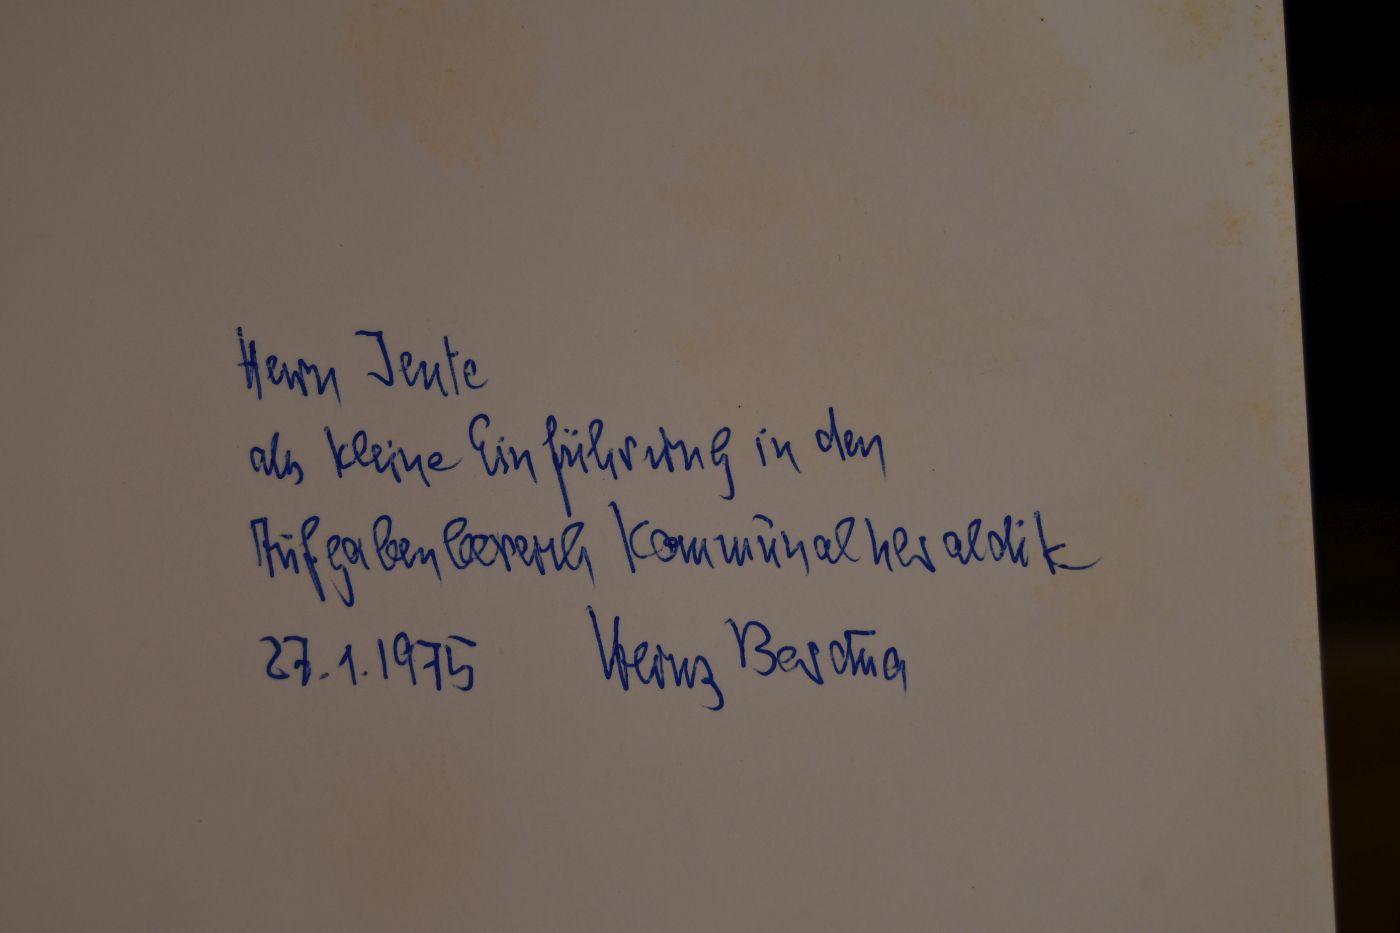 Herrn Jente
als kleine Einführung in den
Aufgabenbereich Kommunalheraldik
27.1.1975 Heinz Bardua